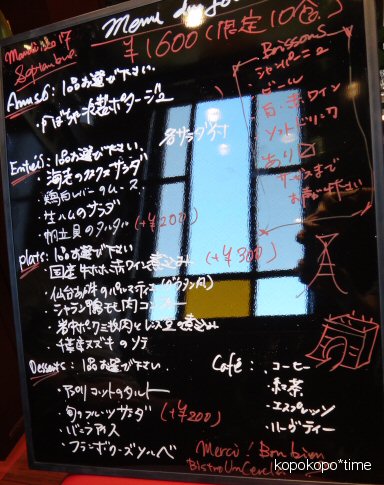 Menu du jour
Mardi 17
Septembre
¥1600 (限定10食)
Amuse: 1品お選び下さい。
・かぼちゃの冷製ポタージュ
Entrées: 1品お選び下さい。
・海老のクスクスサラダ
・鶏白レバーのムース
・生ハムのサラダ
・帆立貝のタルタル (+¥200)
Plats: 1品お選び下さい
・国産牛ホホ赤ワイン煮込み (+¥300)
・シャラン鴨モモ肉コンフィー
・岩中ポークとレンズ豆煮込み
・スズキのソテー
Desserts: 1品お選び下さい
・アプリコットのタルト
・旬のフルーツサラダ (+¥200)
・バニラアイス
・フランボワーズソルベ
Boissons
シャンパーニュ
ビール
白・赤ワイン
ソフトドリンク
あり
サービスまで
お声がけ下さい
Café: ・コーヒー
・紅茶
・エスプレッソ
・ハーブティー
Merci! Bon bien
kopokopo*time